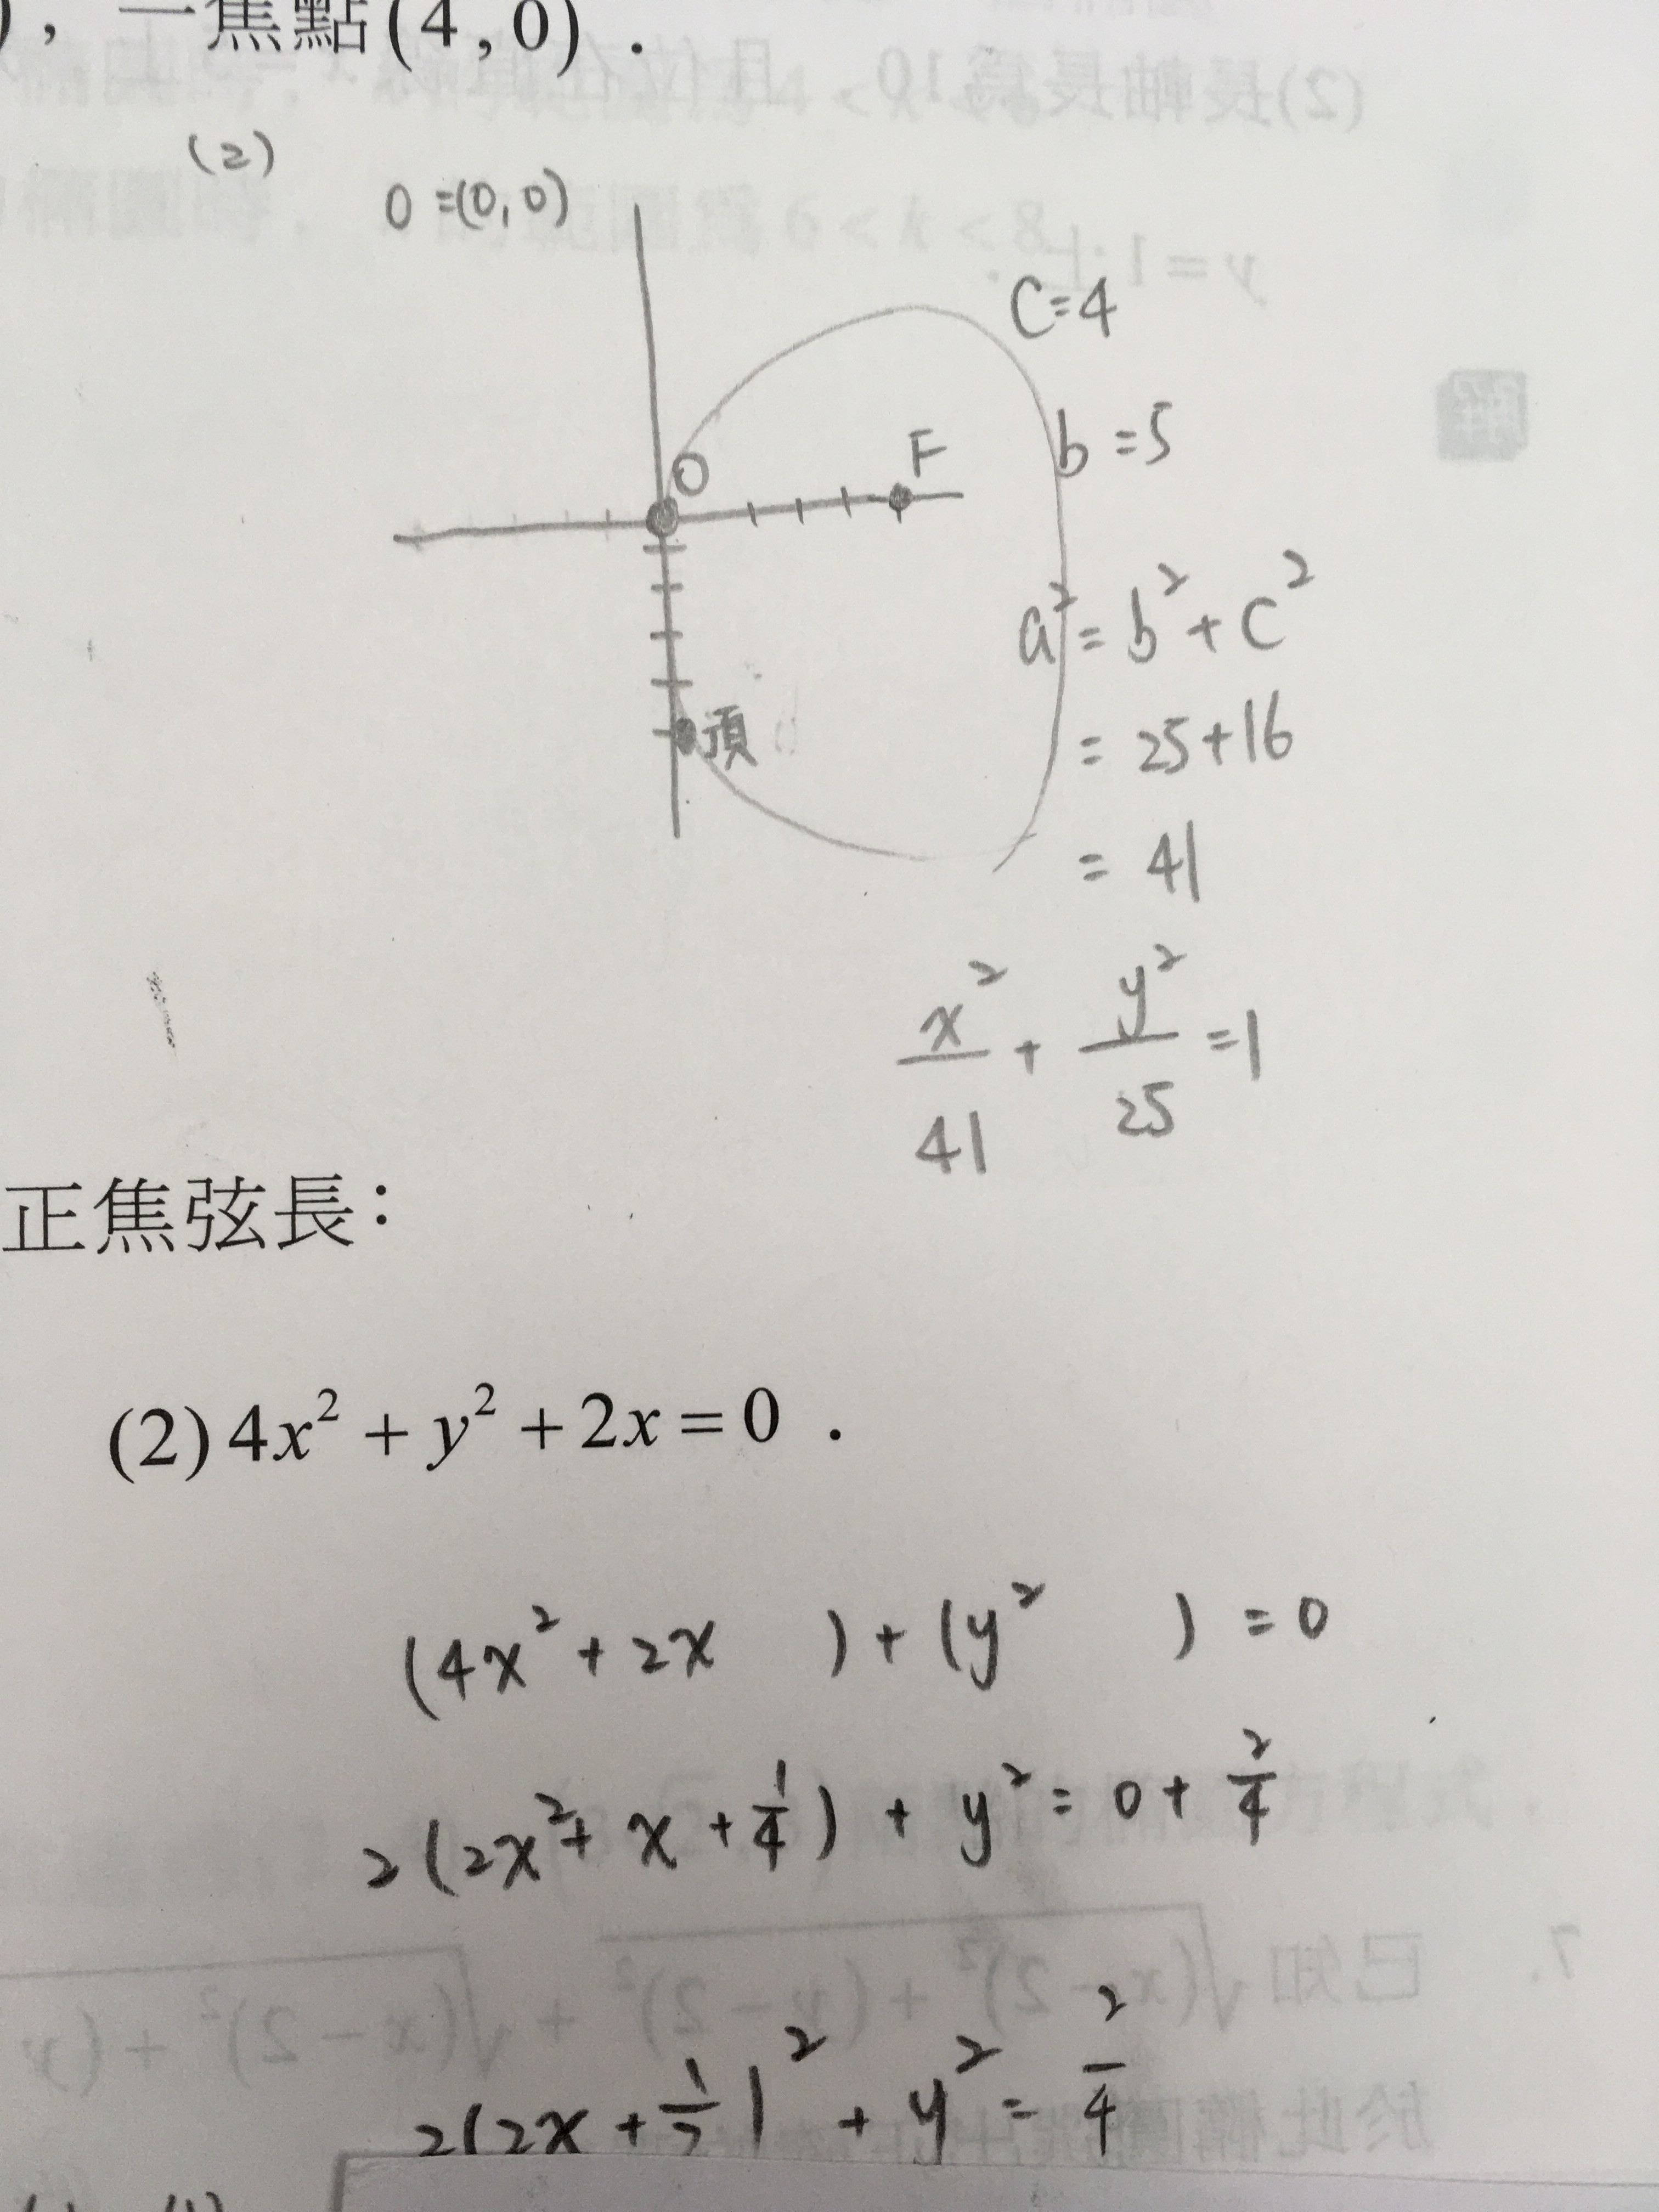 ), 一焦點(4,0).
(2)
O=(0,0)
C=4
O
F
b=5
頂
a²=b²+c²
=25+16
=41
x²/41+y²/25=1
正焦弦長:
(2)4x²+y²+2x=0.
(4x²+2x )+(y² )=0
2(2x²+x+1/4)+y²=0+2/4
2(2x+1/2)²+y²=2/4